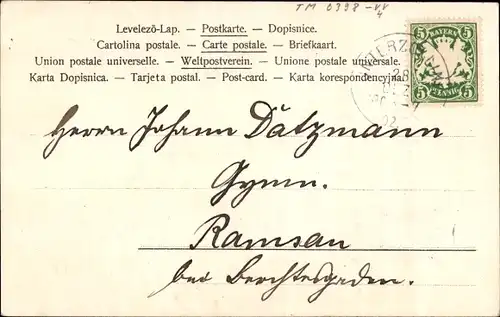 TM 0398-VV
4
Levelezö-Lap. — Postkarte. — Dopisnice.
Cartolina postale. — Carte postale. — Briefkaart.
Union postale universelle. — Weltpostverein. — Unione postale universale.
Karta Dopisnica. — Tarjeta postal. — Post-card. — Karta korespondencyjna.
5 BAYERN 5
5 PFENNIG 5
28
DEZ
02
Herrn Johann Dätzmann
Gymn.
Ramsau
bei Berchtesgaden.